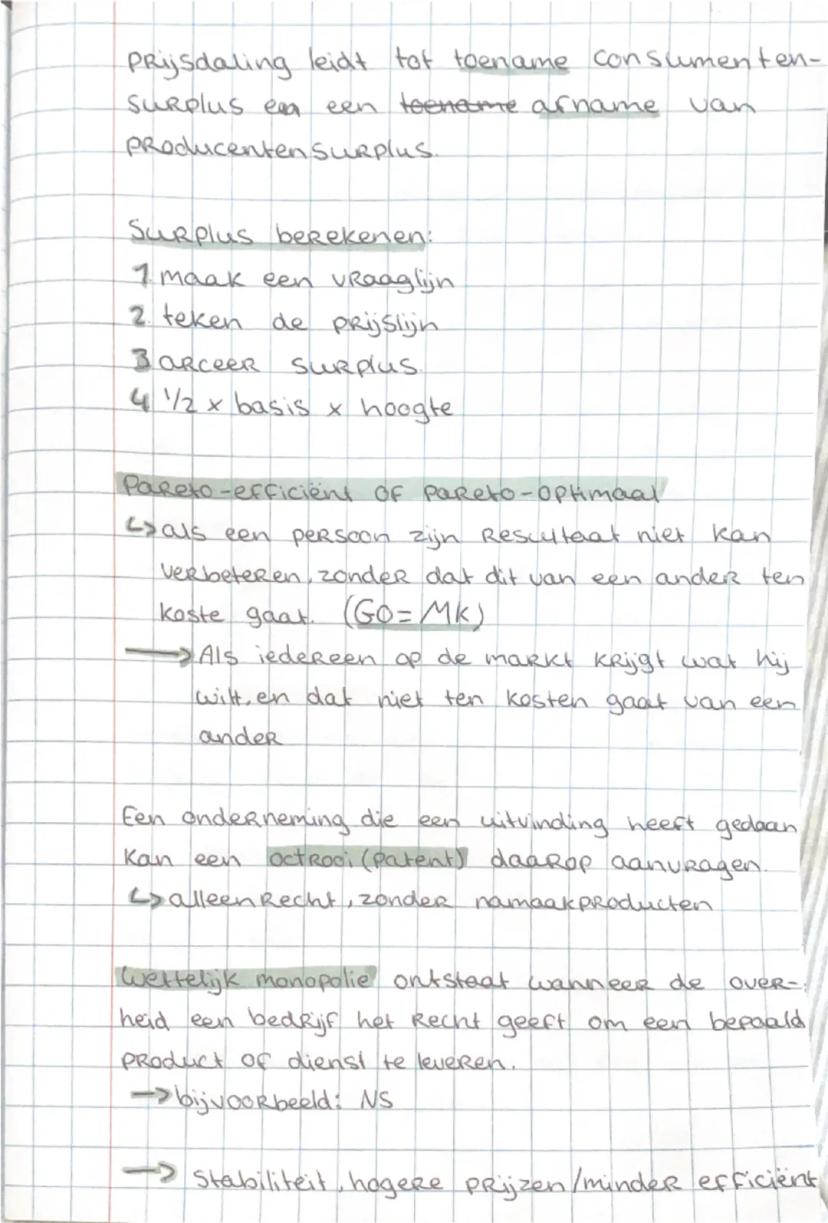 prijsdaling leidt tot toename consumenten-
surplus en een toename afname van
producentensurplus.
Surplus berekenen:
1. maak een vraaglijn
2. teken de prijslijn
3 arceer surplus.
4 1/2 x basis x hoogte
Pareto-efficiënt of pareto-optimaal
↳ als een persoon zijn resultaat niet kan
verbeteren, zonder dat dit van een ander ten
koste gaat. (GO=MK)
→ Als iedereen op de markt krijgt wat hij
wilt, en dat niet ten kosten gaat van een
ander
Een onderneming die een uitvinding heeft gedaan
kan een octrooi (patent) daarop aanvragen.
↳ alleenrecht, zonder namaakproducten
Wettelijk monopolie ontstaat wanneer de over-
heid een bedrijf het recht geeft om een bepaald
product of dienst te leveren.
→ bijvoorbeeld: NS
→ Stabiliteit, hogere prijzen/minder efficiënt